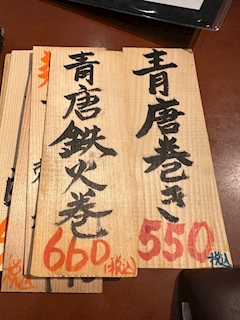 青唐巻き
550
税込
青唐鉄火巻
660
(税込)